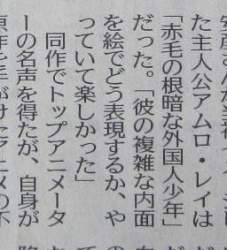 た主人公アムロ・レイは
「赤毛の根暗な外国人少年」
だった。「彼の複雑な内面
を絵でどう表現するか、や
っていて楽しかった」
同作でトップアニメータ
ーの名声を得たが、自身が
原作を手がけたアニメの不